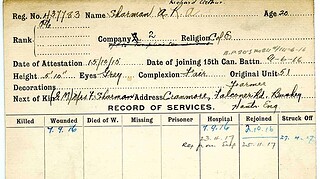 Richard Arthur
Reg. No. 437783 Name Sharman R. A. Age 20
Rank Pte Company 2 Religion C of E
Date of Attestation 15/10/15 Date of joining 15th Can. Battn. 9-6-16
Height 5' 10" Eyes Grey Complexion Fair Original Unit 51
Decorations Farmer
Next of Kin Address Cranmore, Falconer Rd, Bushey
Hants Eng
RECORD OF SERVICES.
Killed Wounded Died of W. Missing Prisoner Hospital Rejoined Struck Off
7.9.16 7.9.16 2.10.16
23.11.17 25.11.17 27.11.17